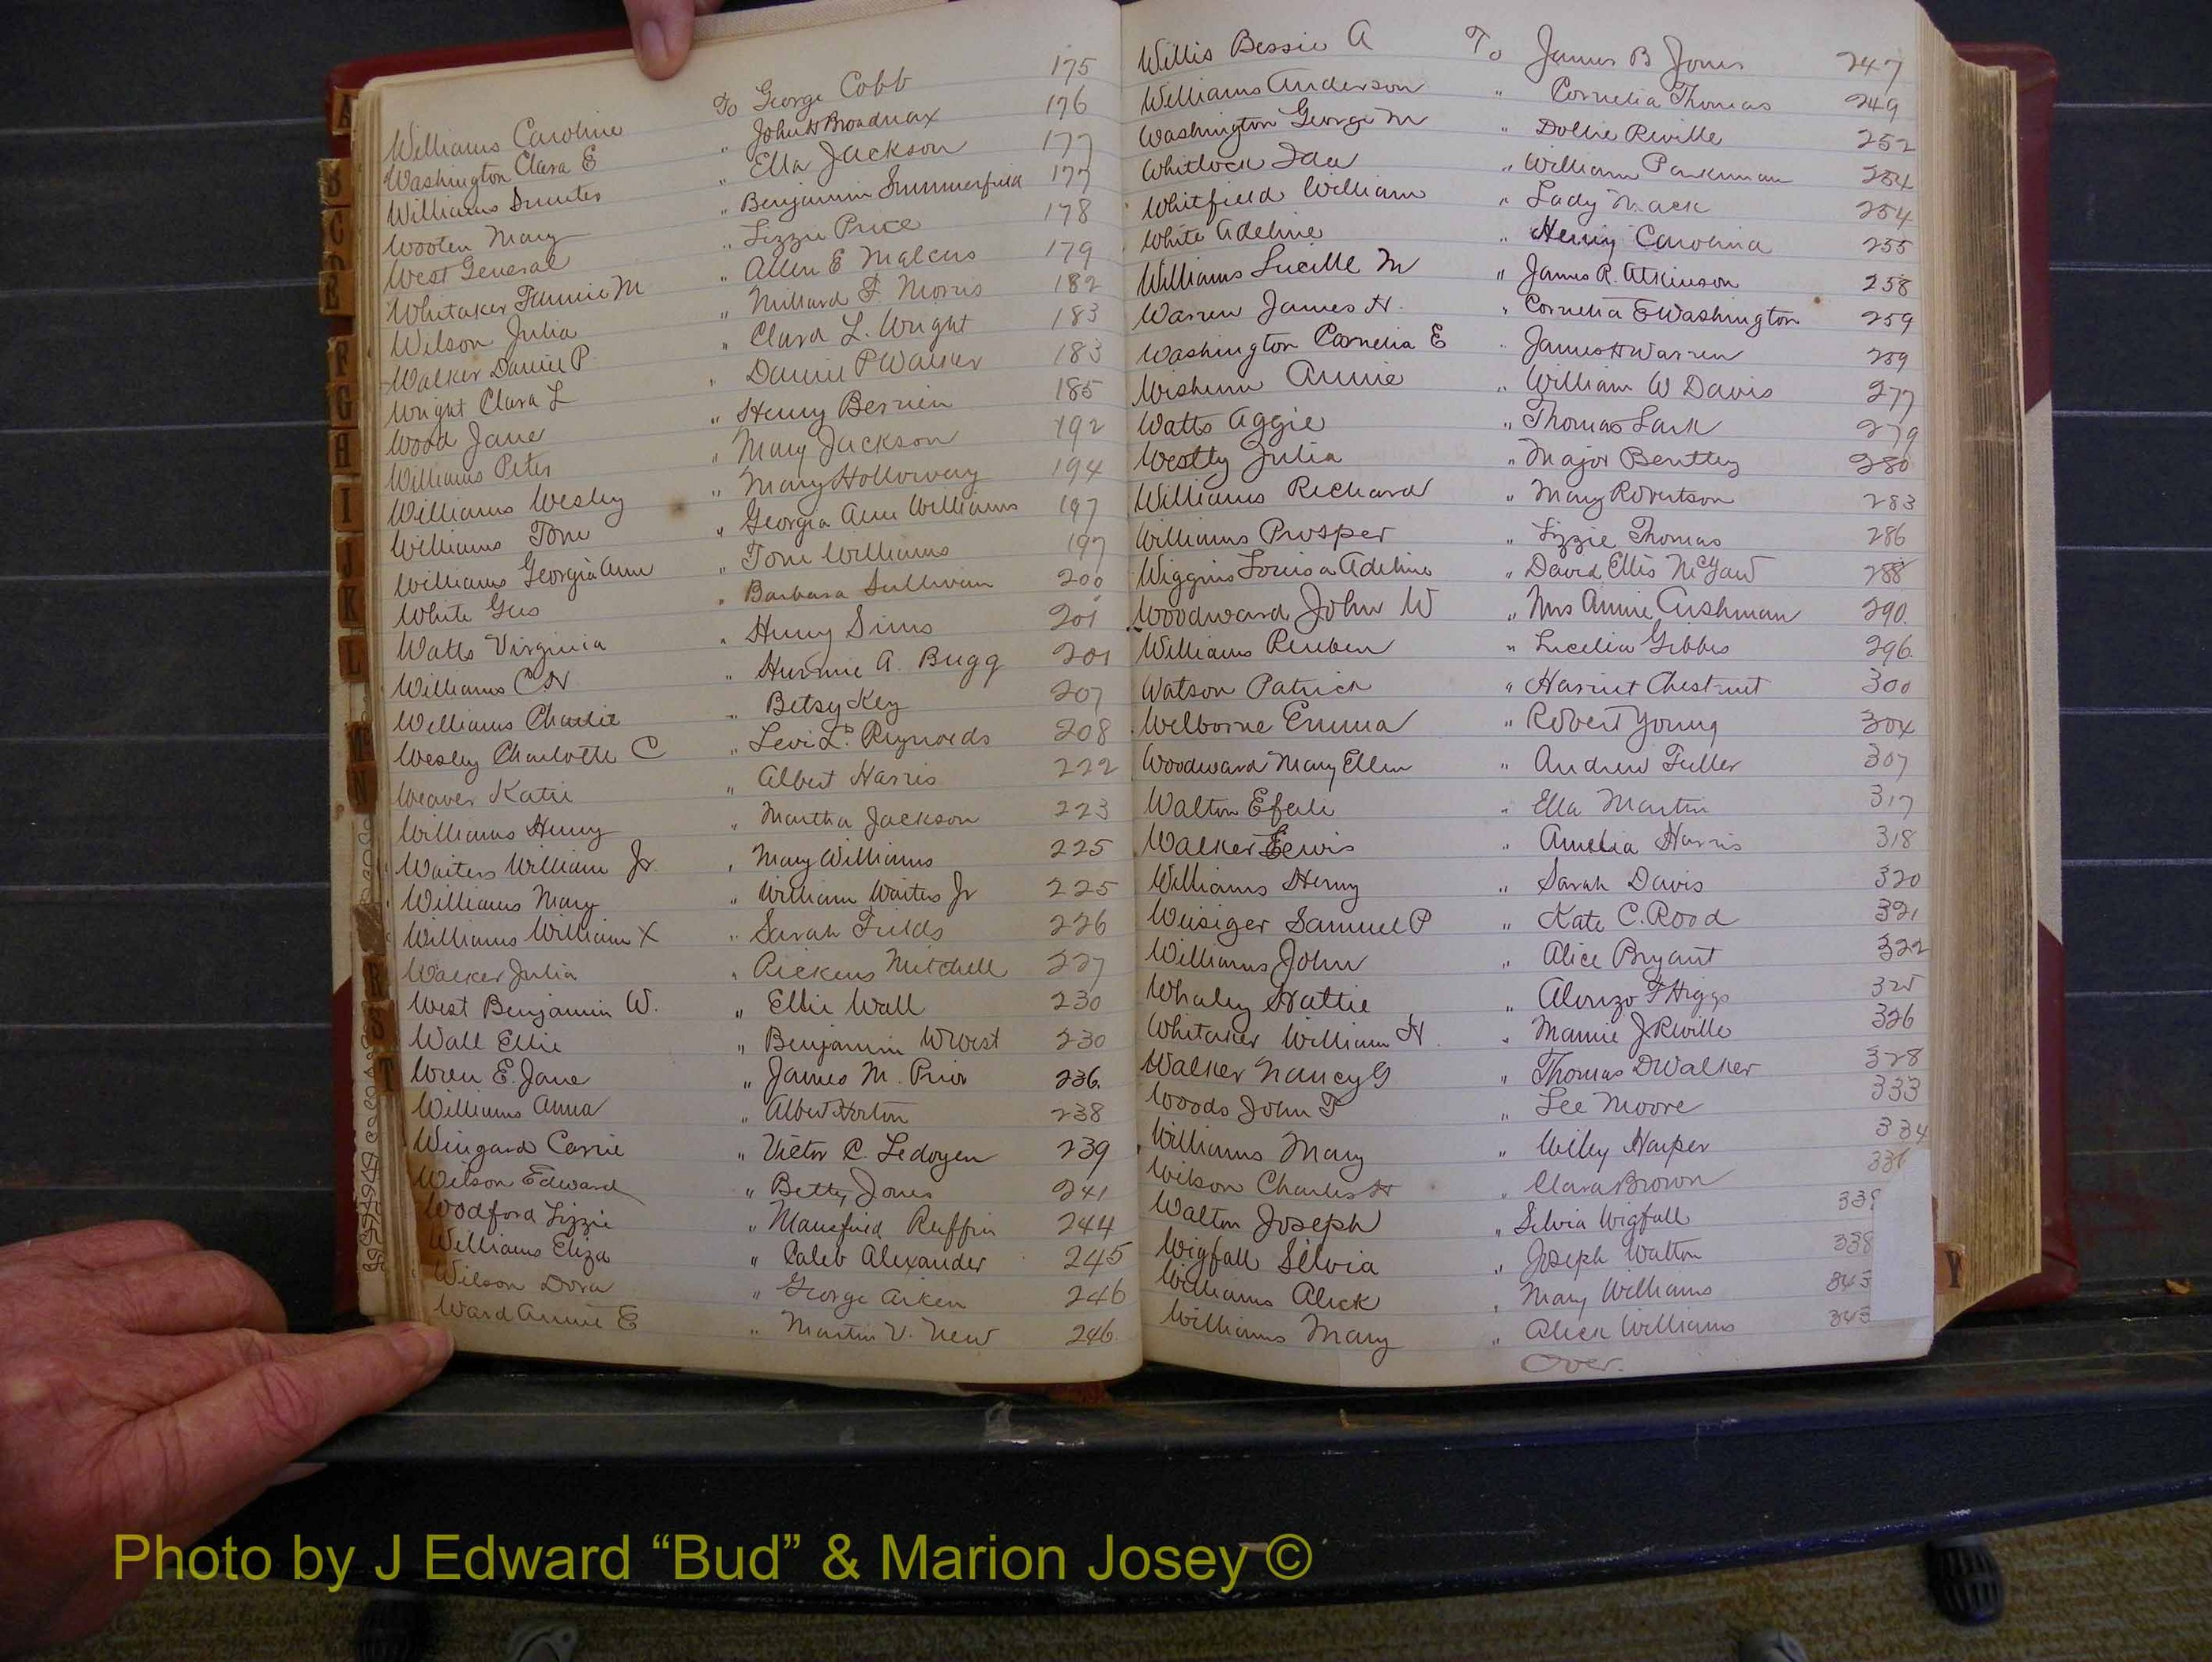 Williams Caroline To George Cobb 175
Washington Clara E " John H Broadnax 176
Williams Sumter " Ella Jackson 177
Wooten Mary " Benjamin Summerfield 177
West General " Lizzie Price 178
Whitaker Fannie M " Allen E Malcus 179
Wilson Julia " Millard F. Morris 182
Walker Daniel P " Clara L. Wright 183
Wright Clara L " Daniel P Walker 183
Wood Jane " Henry Berrien 185
Williams Peter " Mary Jackson 192
Williams Wesley " Mary Holloway 194
Williams Tom " Georgia Ann Williams 197
Williams Georgia Ann " Tom Williams 197
White Gus " Barbara Sullivan 200
Watts Virginia " Henry Sims 201
Williams C H " A. Bugg 201
Williams Charlie " Betsy Key 207
Wesley Charlotte C " Levi L. Reynolds 208
Weaver Katie " Albert Harris 222
Williams Henry " Martha Jackson 223
Waiters William Jr. " Mary Williams 225
Williams Mary " William Waites Jr 225
Williams William X " Sarah Fields 226
Walker Julia " Pickens Mitchell 227
West Benjamin W. " Ellie Wall 230
Wall Ellie " Benjamin W West 230
Wren E. Jane " James M. Prior 236.
Williams Anna " Albert Horton 238
Wingard Carrie " Victor C. Ledoyen 239
Wilson Edward " Betty Jones 241
Woodford Lizzie " Mansfield Ruffin 244
Williams Eliza " Caleb Alexander 245
Wilson Dora " George Aiken 246
Ward Annie E " Martin V. New 246.
Willis Bessie A To James B Jones 247
Williams Anderson " Cornelia Thomas 249
Washington George M " Dollie Reville 252
Whitlock Ida " William Parkman 254
Whitfield William " Lady Mack 254
White Adeline " Henry Carolina 255
Williams Lucille M " James R. Atkinson 258
Warren James H. " Cornelia E Washington 259
Washington Cornelia E " James H Warren 259
Wishum Annie " William W Davis 277
Watts Aggie " Thomas Lark 279
Westly Julia " Major Bentley 280
Williams Richard " Mary Robertson 283
Williams Prosper " Lizzie Thomas 286
Wiggins Louisa Adeline " David Ellis McGaw 288
Woodward John W " Mrs Annie Cushman 290.
Williams Reuben " Lucelia Gibbes 296
Watson Patrick " Harriet Chestnut 300
Welborne Emma " Robert Young 304
Woodward Mary Ellen " Andrew Fuller 307
Walton " Ella Martin 317
Walker Lewis " Amelia Harris 318
Williams Henry " Sarah Davis 320
Weisiger Samuel P " Kate C. Rood 321
Williams John " Alice Bryant 322
Whaley Hattie " Alonzo F Higgs 325
Whitaker William H. " Mamie J. Reville 326
Walker Nancy G " Thomas D Walker 328
Woods John F " Lee Moore 333
Williams Mary " Wiley Harper 334
Wilson Charles H " Clara Brown
Walton Joseph " Silvia Wigfall 338
Wigfall Silvia " Joseph Walton 338
Williams Alick " Mary Williams 343
Williams Mary " Alick Williams 343
Over.
A
B
C
F
G
H
I
J
K
L
N
T
Y
Photo by J Edward “Bud” & Marion Josey ©